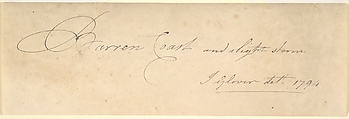 Barren Coast and slight storm
J Glover delt. 1794